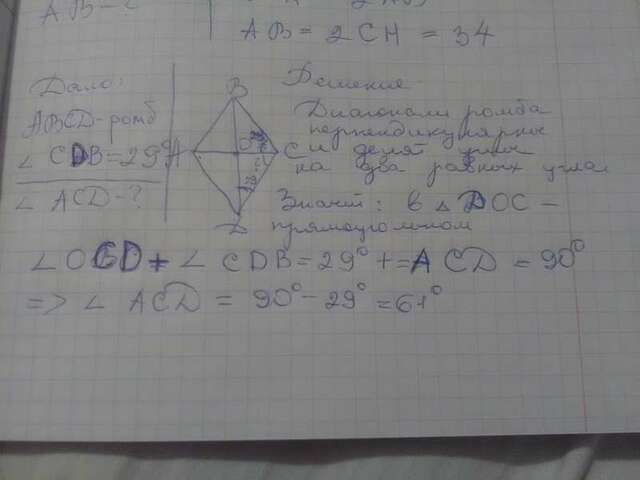 AB-?
AB = 2CH = 34
Дано:
ABCD-ромб
∠ CDB=29°
∠ ACD-?
B
A
O
C
D
29°
?
Решение
Диагонали ромба
перпендикулярны
и делят углы
на два равных угла
Значит: в △ DOC -
прямоугольном
∠OCD + ∠ CDB=29° += ACD = 90°
=> ∠ ACD = 90° - 29° = 61°